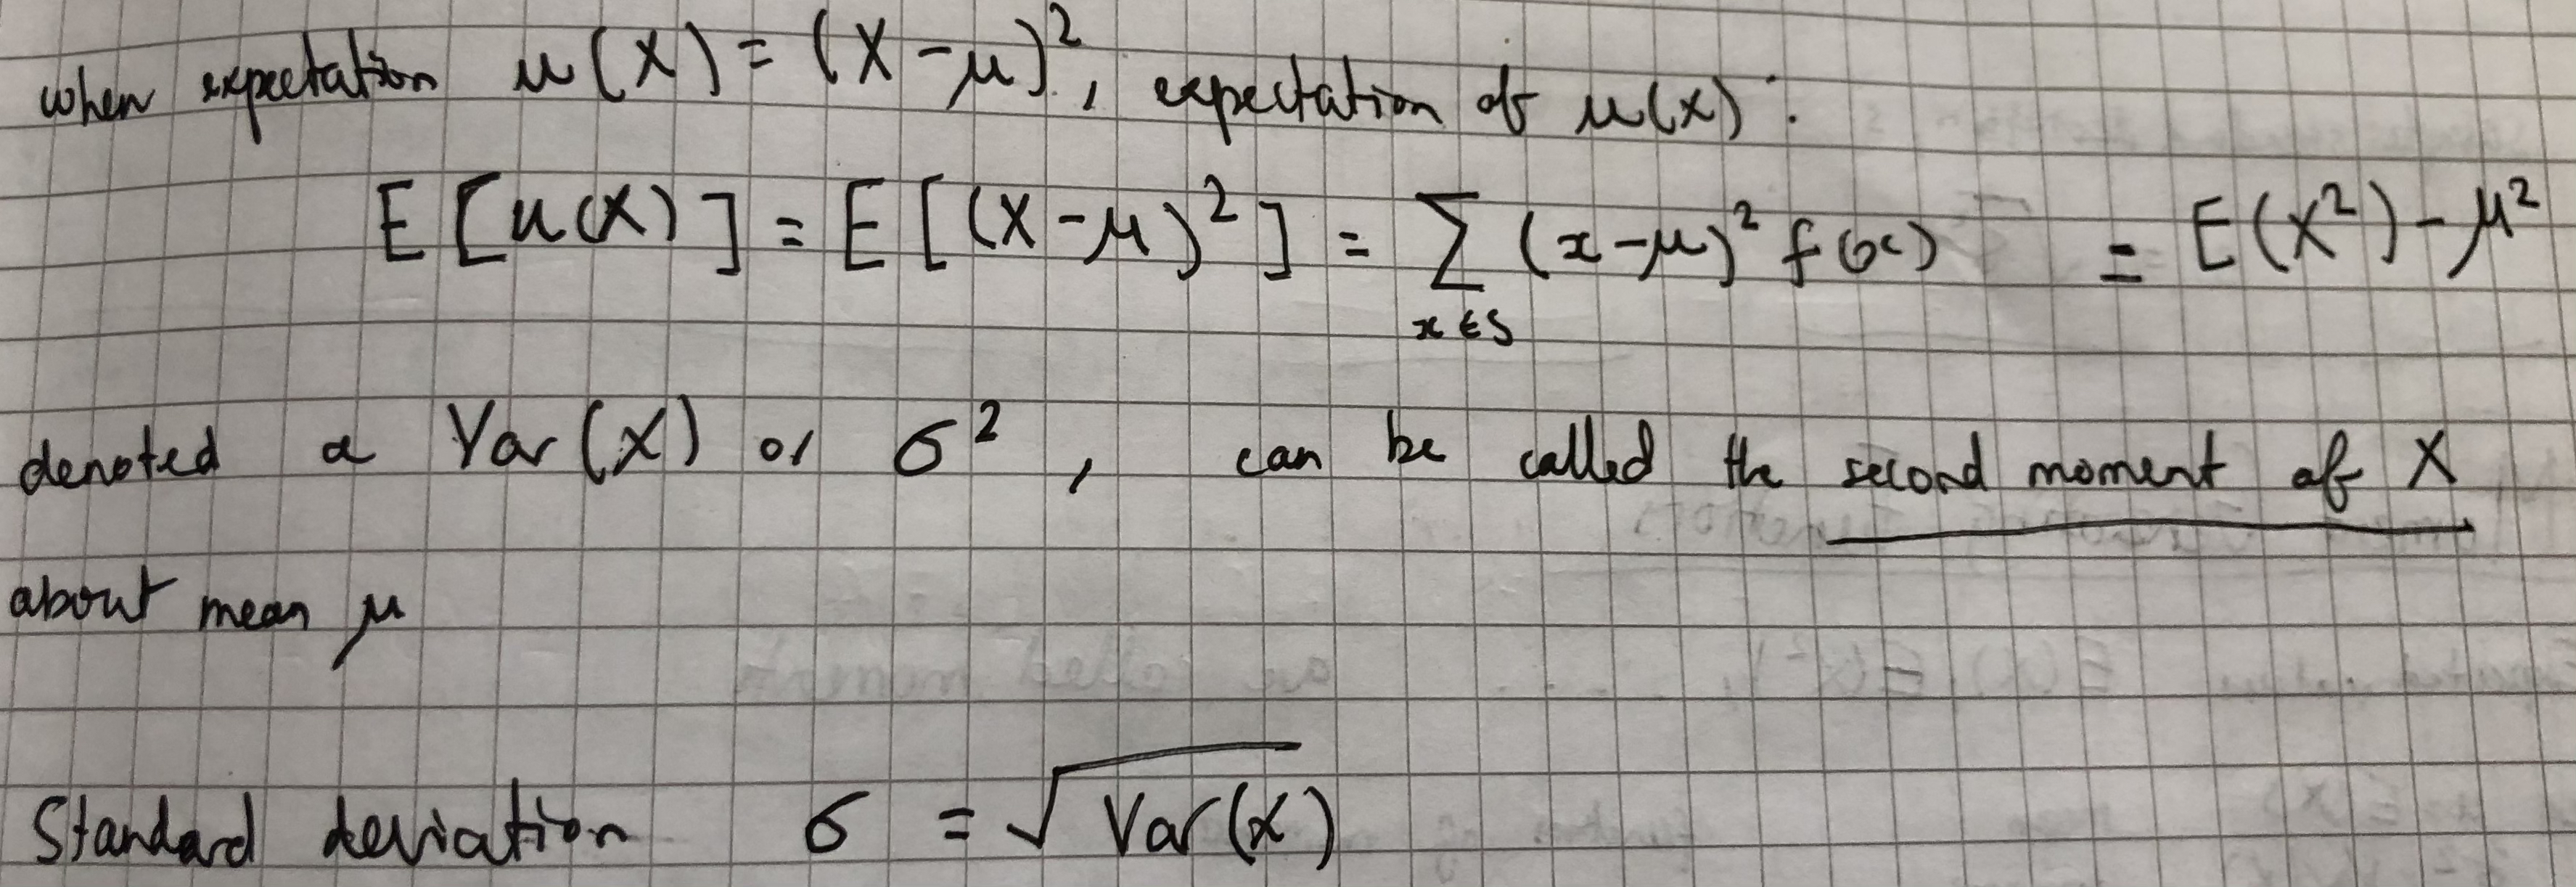 when expectation u(X) = (X - μ)², expectation of u(X) :
E [u(X)] = E [(X - μ)²] = ∑ x ∈ S (x - μ)² f(x) = E(X²) - μ²
denoted a Var(X) or σ² , can be called the second moment of X
about mean μ
Standard deviation σ = √Var(X)